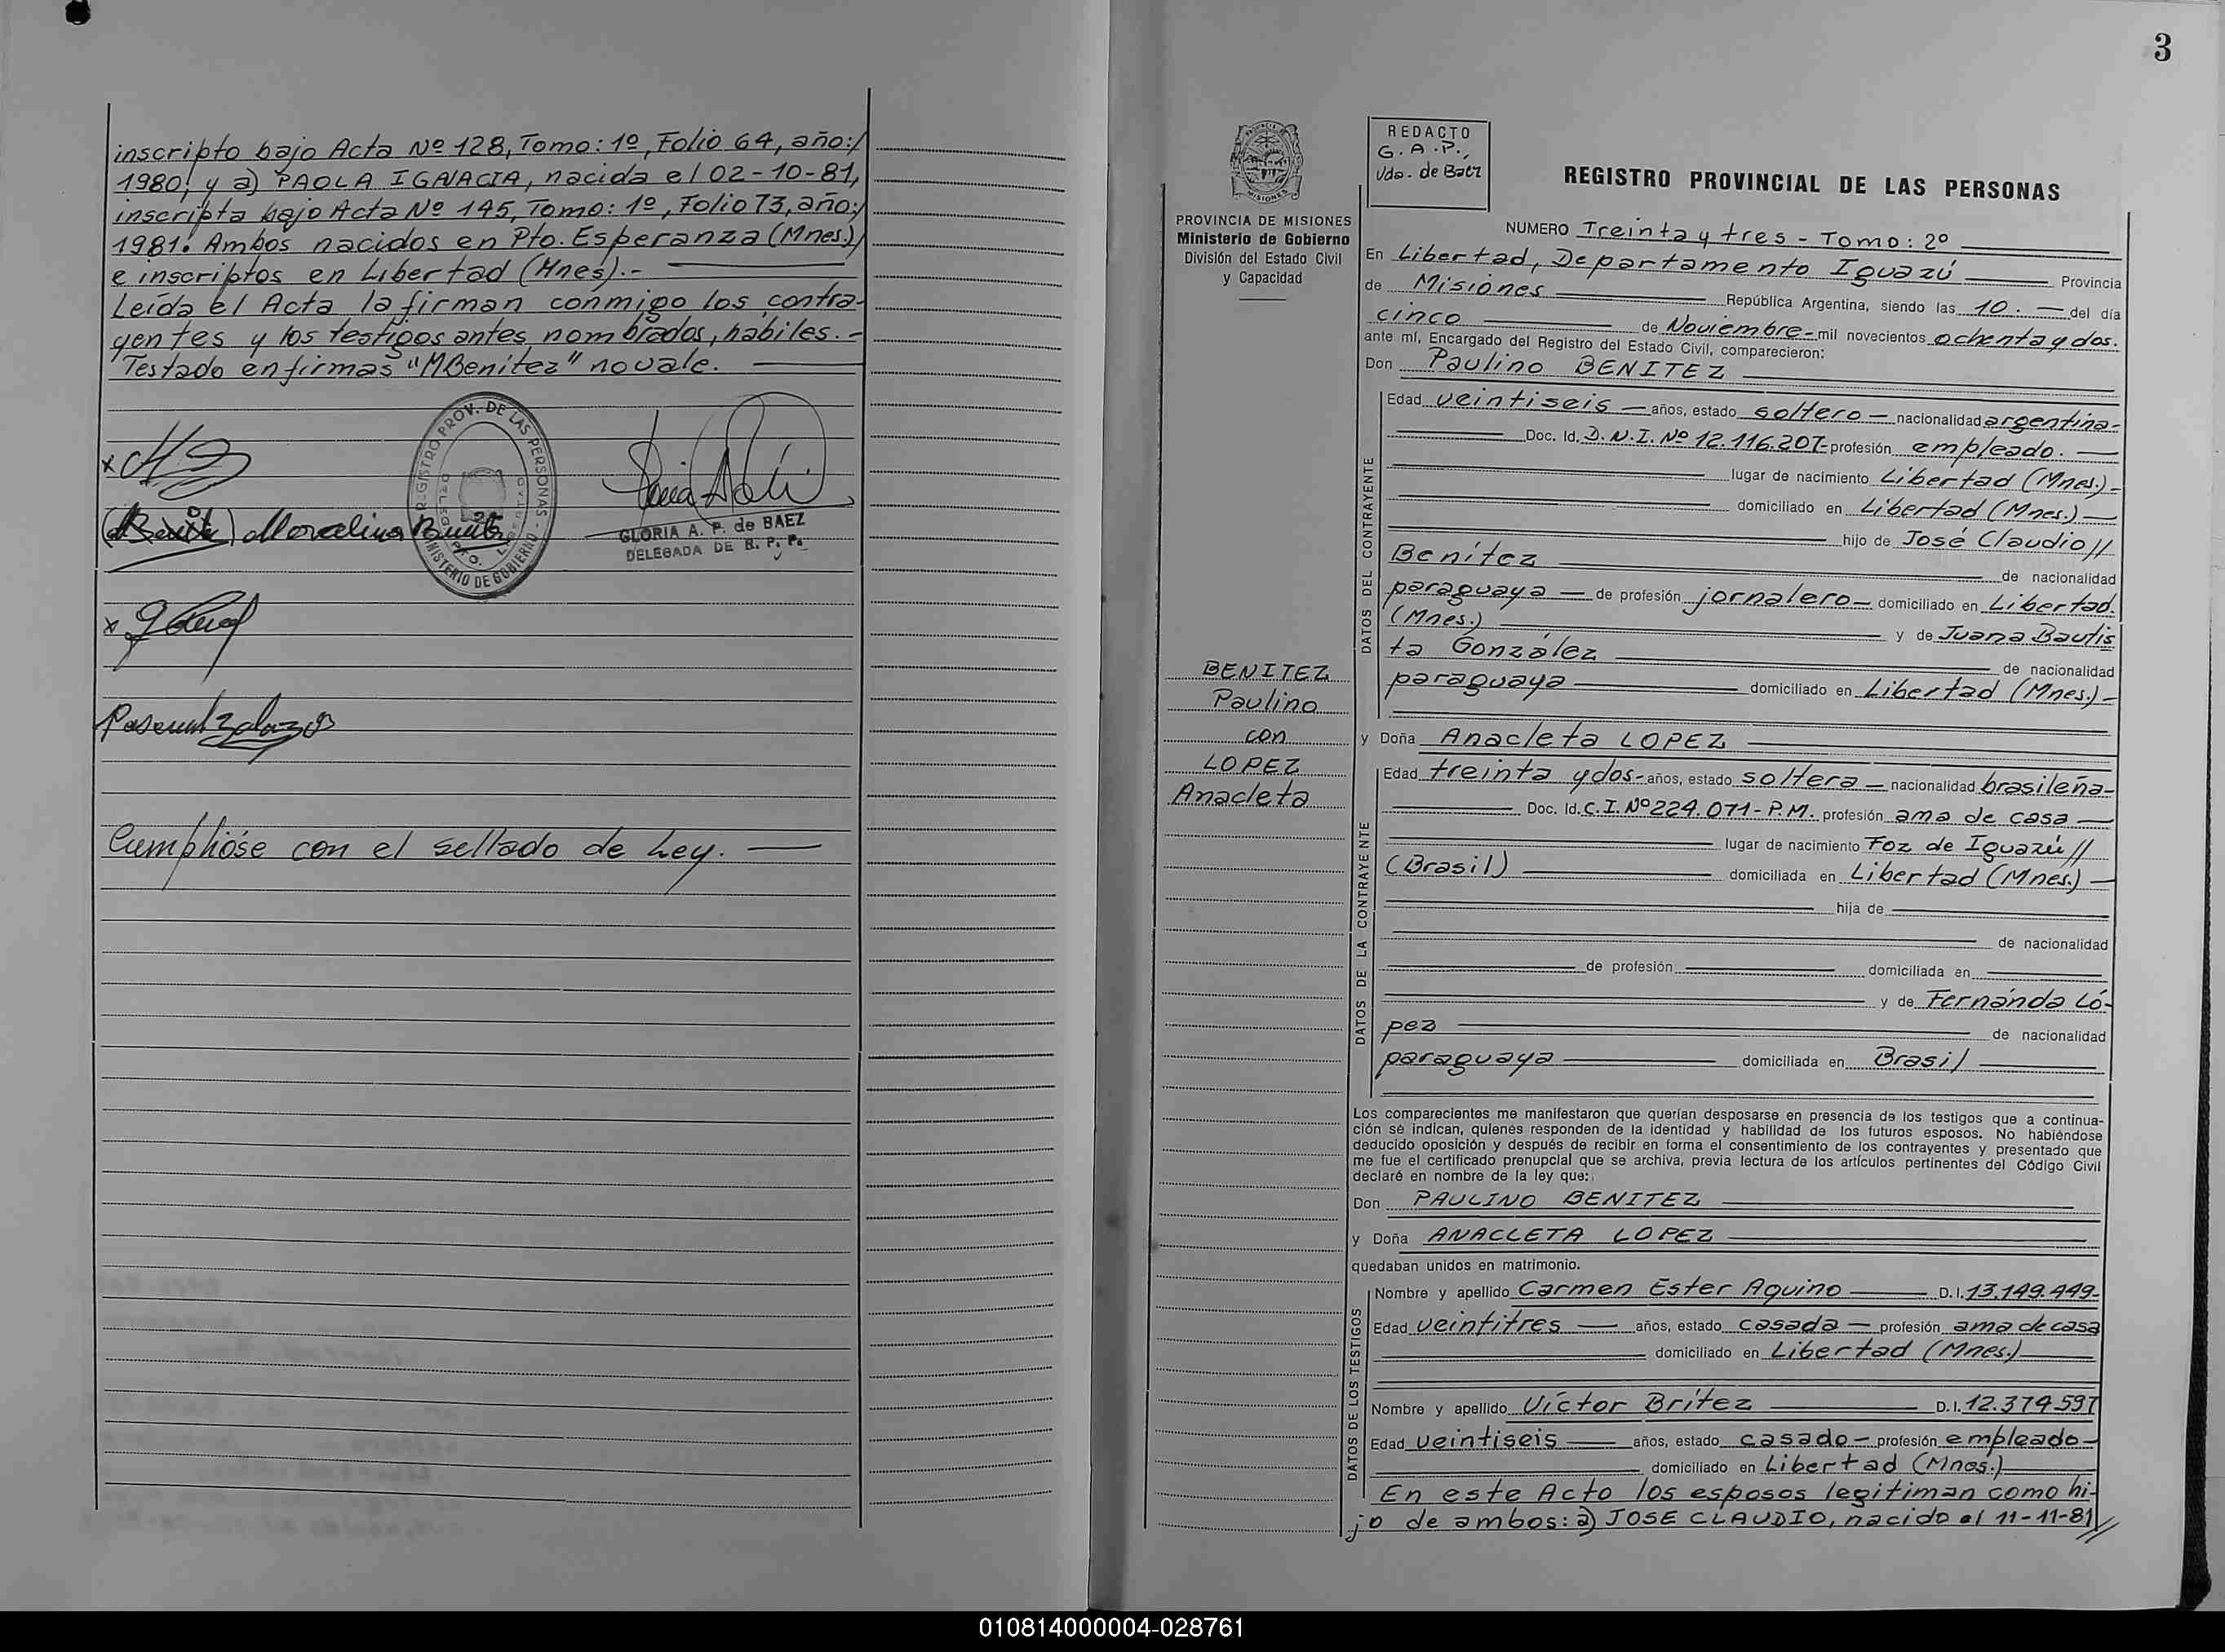 inscripto bajo Acta Nº 128, Tomo: 1º, Folio 64, año:/
1980; y a) PAOLA IGNACIA, nacida el 02-10-81,
inscripta bajo Acta Nº 145, Tomo: 1º, Folio 73, año:/
1981. Ambos nacidos en Pto. Esperanza (Mnes.)/
e inscriptos en Libertad (Mnes).-
Leída el Acta, la firman conmigo los contra-
yentes y los testigos antes nombrados, hábiles.-
Testado en firmas "MBenítez" no vale.
REGISTRO PROV. DE LAS PERSONAS - MINISTERIO DE GOBIERNO
Marcelina Benitez
GLORIA A. P. de BAEZ
DELEGADA DE R. P. P.
Cumplióse con el sellado de Ley.
3
PROVINCIA DE MISIONES
Ministerio de Gobierno
División del Estado Civil
y Capacidad
REDACTO
G. A. P.,
Vda. de Baez
REGISTRO PROVINCIAL DE LAS PERSONAS
NUMERO Treinta y tres - Tomo: 2º
En Libertad, Departamento Iguazú Provincia
de Misiones República Argentina, siendo las 10. del día
cinco de Noviembre - mil novecientos ochenta y dos.
ante mí, Encargado del Registro del Estado Civil, comparecieron:
Don Paulino BENITEZ
DATOS DEL CONTRAYENTE
Edad veintiseis años, estado soltero nacionalidad argentina-
Doc. Id. D.N.I. Nº 12.116.207- profesión empleado.
lugar de nacimiento Libertad (Mnes.)-
domiciliado en Libertad (Mnes.)
hijo de José Claudio//
Benítez de nacionalidad
paraguaya de profesión jornalero domiciliado en Libertad.
(Mnes.) y de Juana Bautis
ta González de nacionalidad
paraguaya domiciliado en Libertad (Mnes.)-
BENITEZ
Paulino
con
LOPEZ
Anacleta
y Doña Anacleta LOPEZ
DATOS DE LA CONTRAYENTE
Edad treinta y dos- años, estado soltera nacionalidad brasileña-
Doc. Id. C.I. Nº 224.071-P.M. profesión ama de casa
lugar de nacimiento Foz de Iguazú//
(Brasil) domiciliada en Libertad (Mnes.)
hija de
de nacionalidad
de profesión domiciliada en
y de Fernánda Ló-
pez de nacionalidad
paraguaya domiciliada en Brasil
Los comparecientes me manifestaron que querían desposarse en presencia de los testigos que a continua-
ción se indican, quienes responden de la identidad y habilidad de los futuros esposos. No habiéndose
deducido oposición y después de recibir en forma el consentimiento de los contrayentes y presentado que
me fue el certificado prenupcial que se archiva, previa lectura de los artículos pertinentes del Código Civil
declaré en nombre de la ley que:
Don PAULINO BENITEZ
y Doña ANACLETA LOPEZ
quedaban unidos en matrimonio.
DATOS DE LOS TESTIGOS
Nombre y apellido Carmen Ester Aquino D.I. 13.149.449-
Edad veintitres años, estado casada profesión ama de casa
domiciliado en Libertad (Mnes.)
Nombre y apellido Víctor Brítez D.I. 12.374.597
Edad veintiseis años, estado casado- profesión empleado-
domiciliado en Libertad (Mnes.)
En este Acto los esposos legitiman como hi-
jo de ambos: a) JOSE CLAUDIO, nacido el 11-11-81//
010814000004-028761